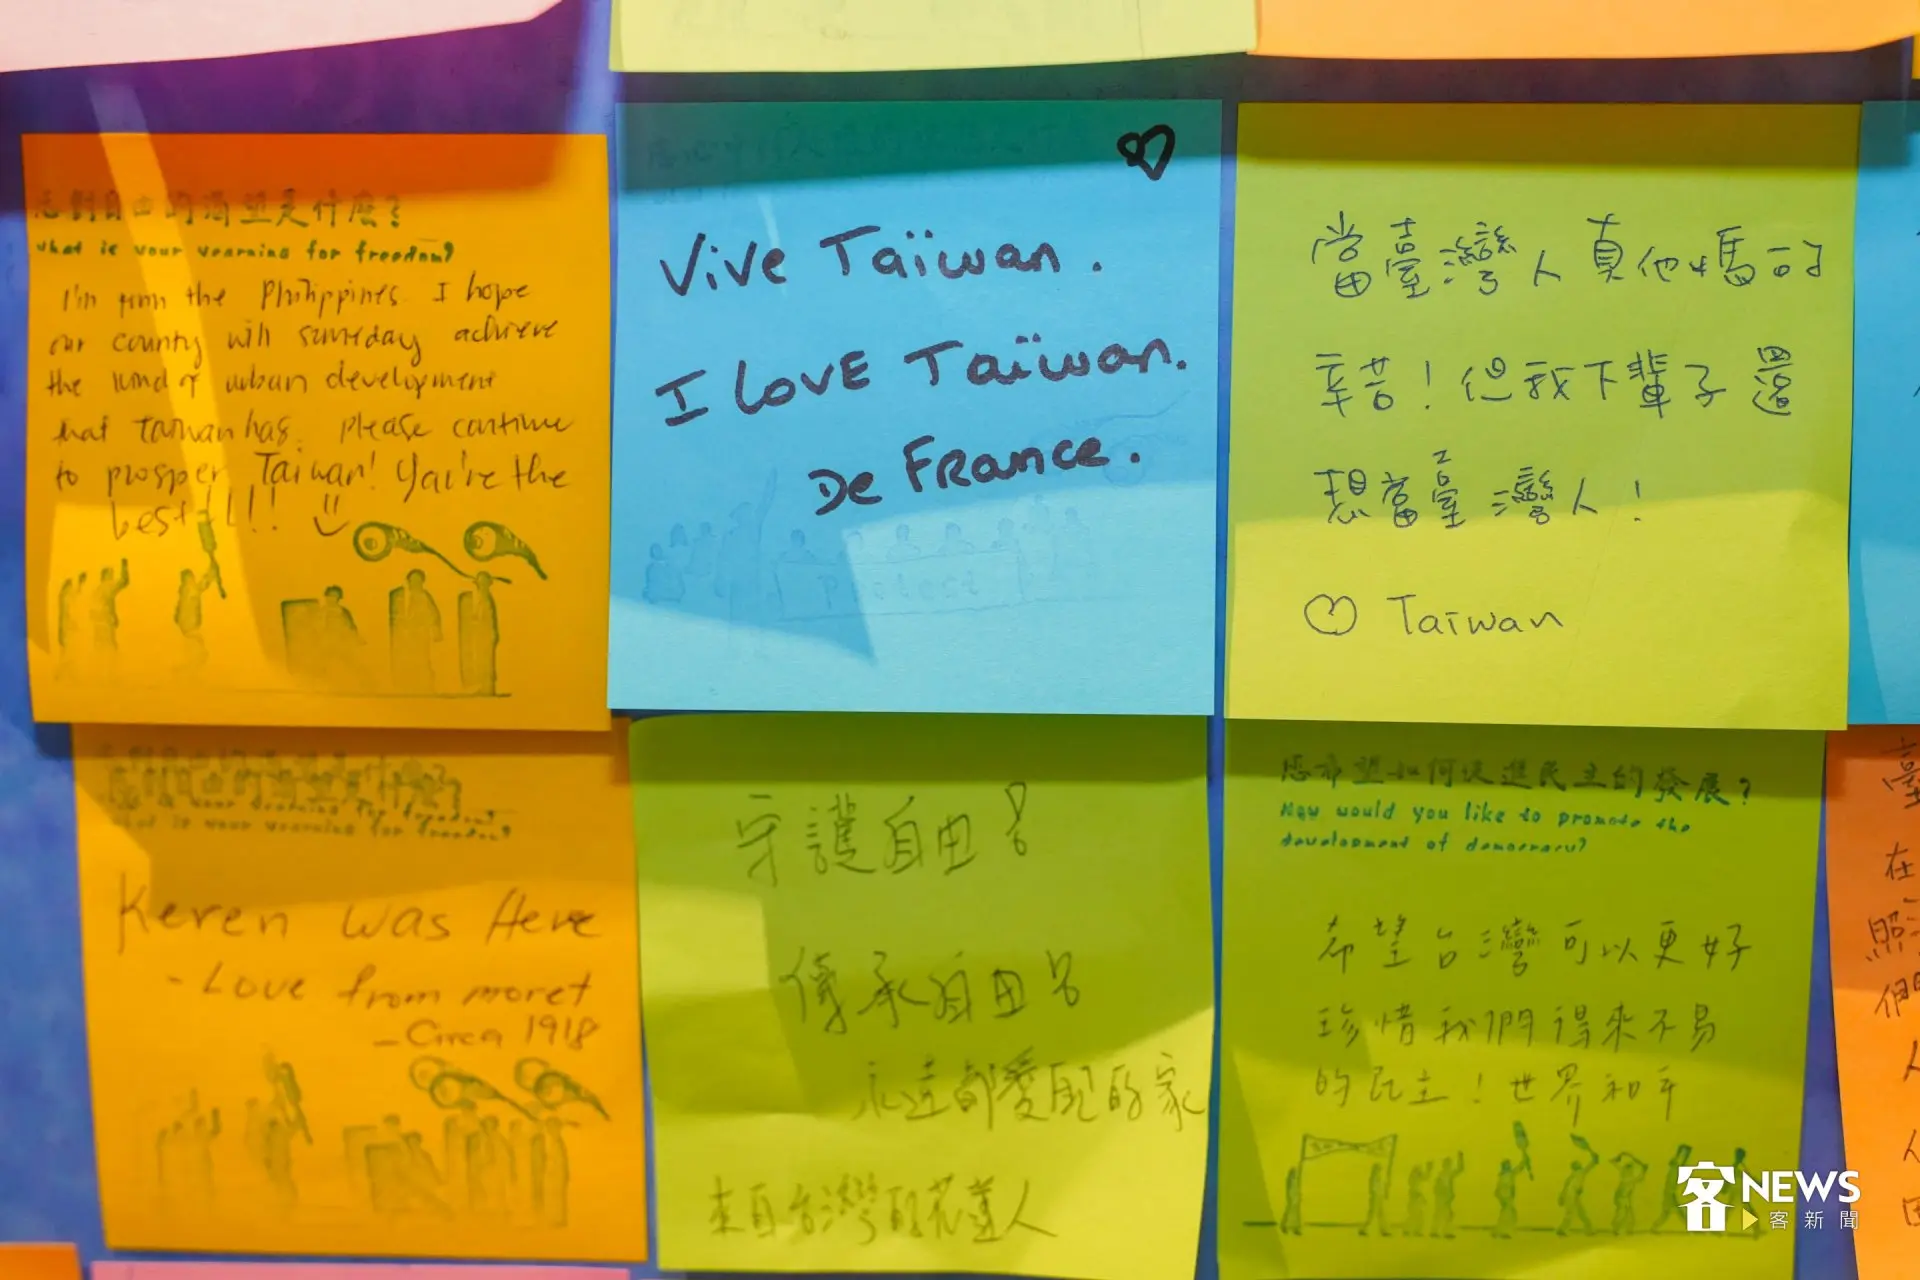 您對自由的渴望是什麼?
What is your yearning for freedom?
I'm from the Philippines. I hope
our country will someday achieve
the kind of urban development
that Taiwan has. Please continue
to prosper, Taiwan! You're the
best!!!
Vive Taïwan.
I LOVE Taïwan.
De FRance.
Protect
當臺灣人真他媽的
辛苦!但我下輩子還
想當臺灣人!
Taiwan
您對自由的渴望是什麼?
What is your yearning for freedom?
Keren was Here
- Love from moret
- Circa 1918
守護自由
傳承自由
永遠都愛的家
來自台灣的花蓮人
您希望如何促進民主的發展?
How would you like to promote the
development of democracy?
希望台灣可以更好
珍惜我們得來不易
的民主!世界和平
臺
在
照
們
人
NEWS
客新聞